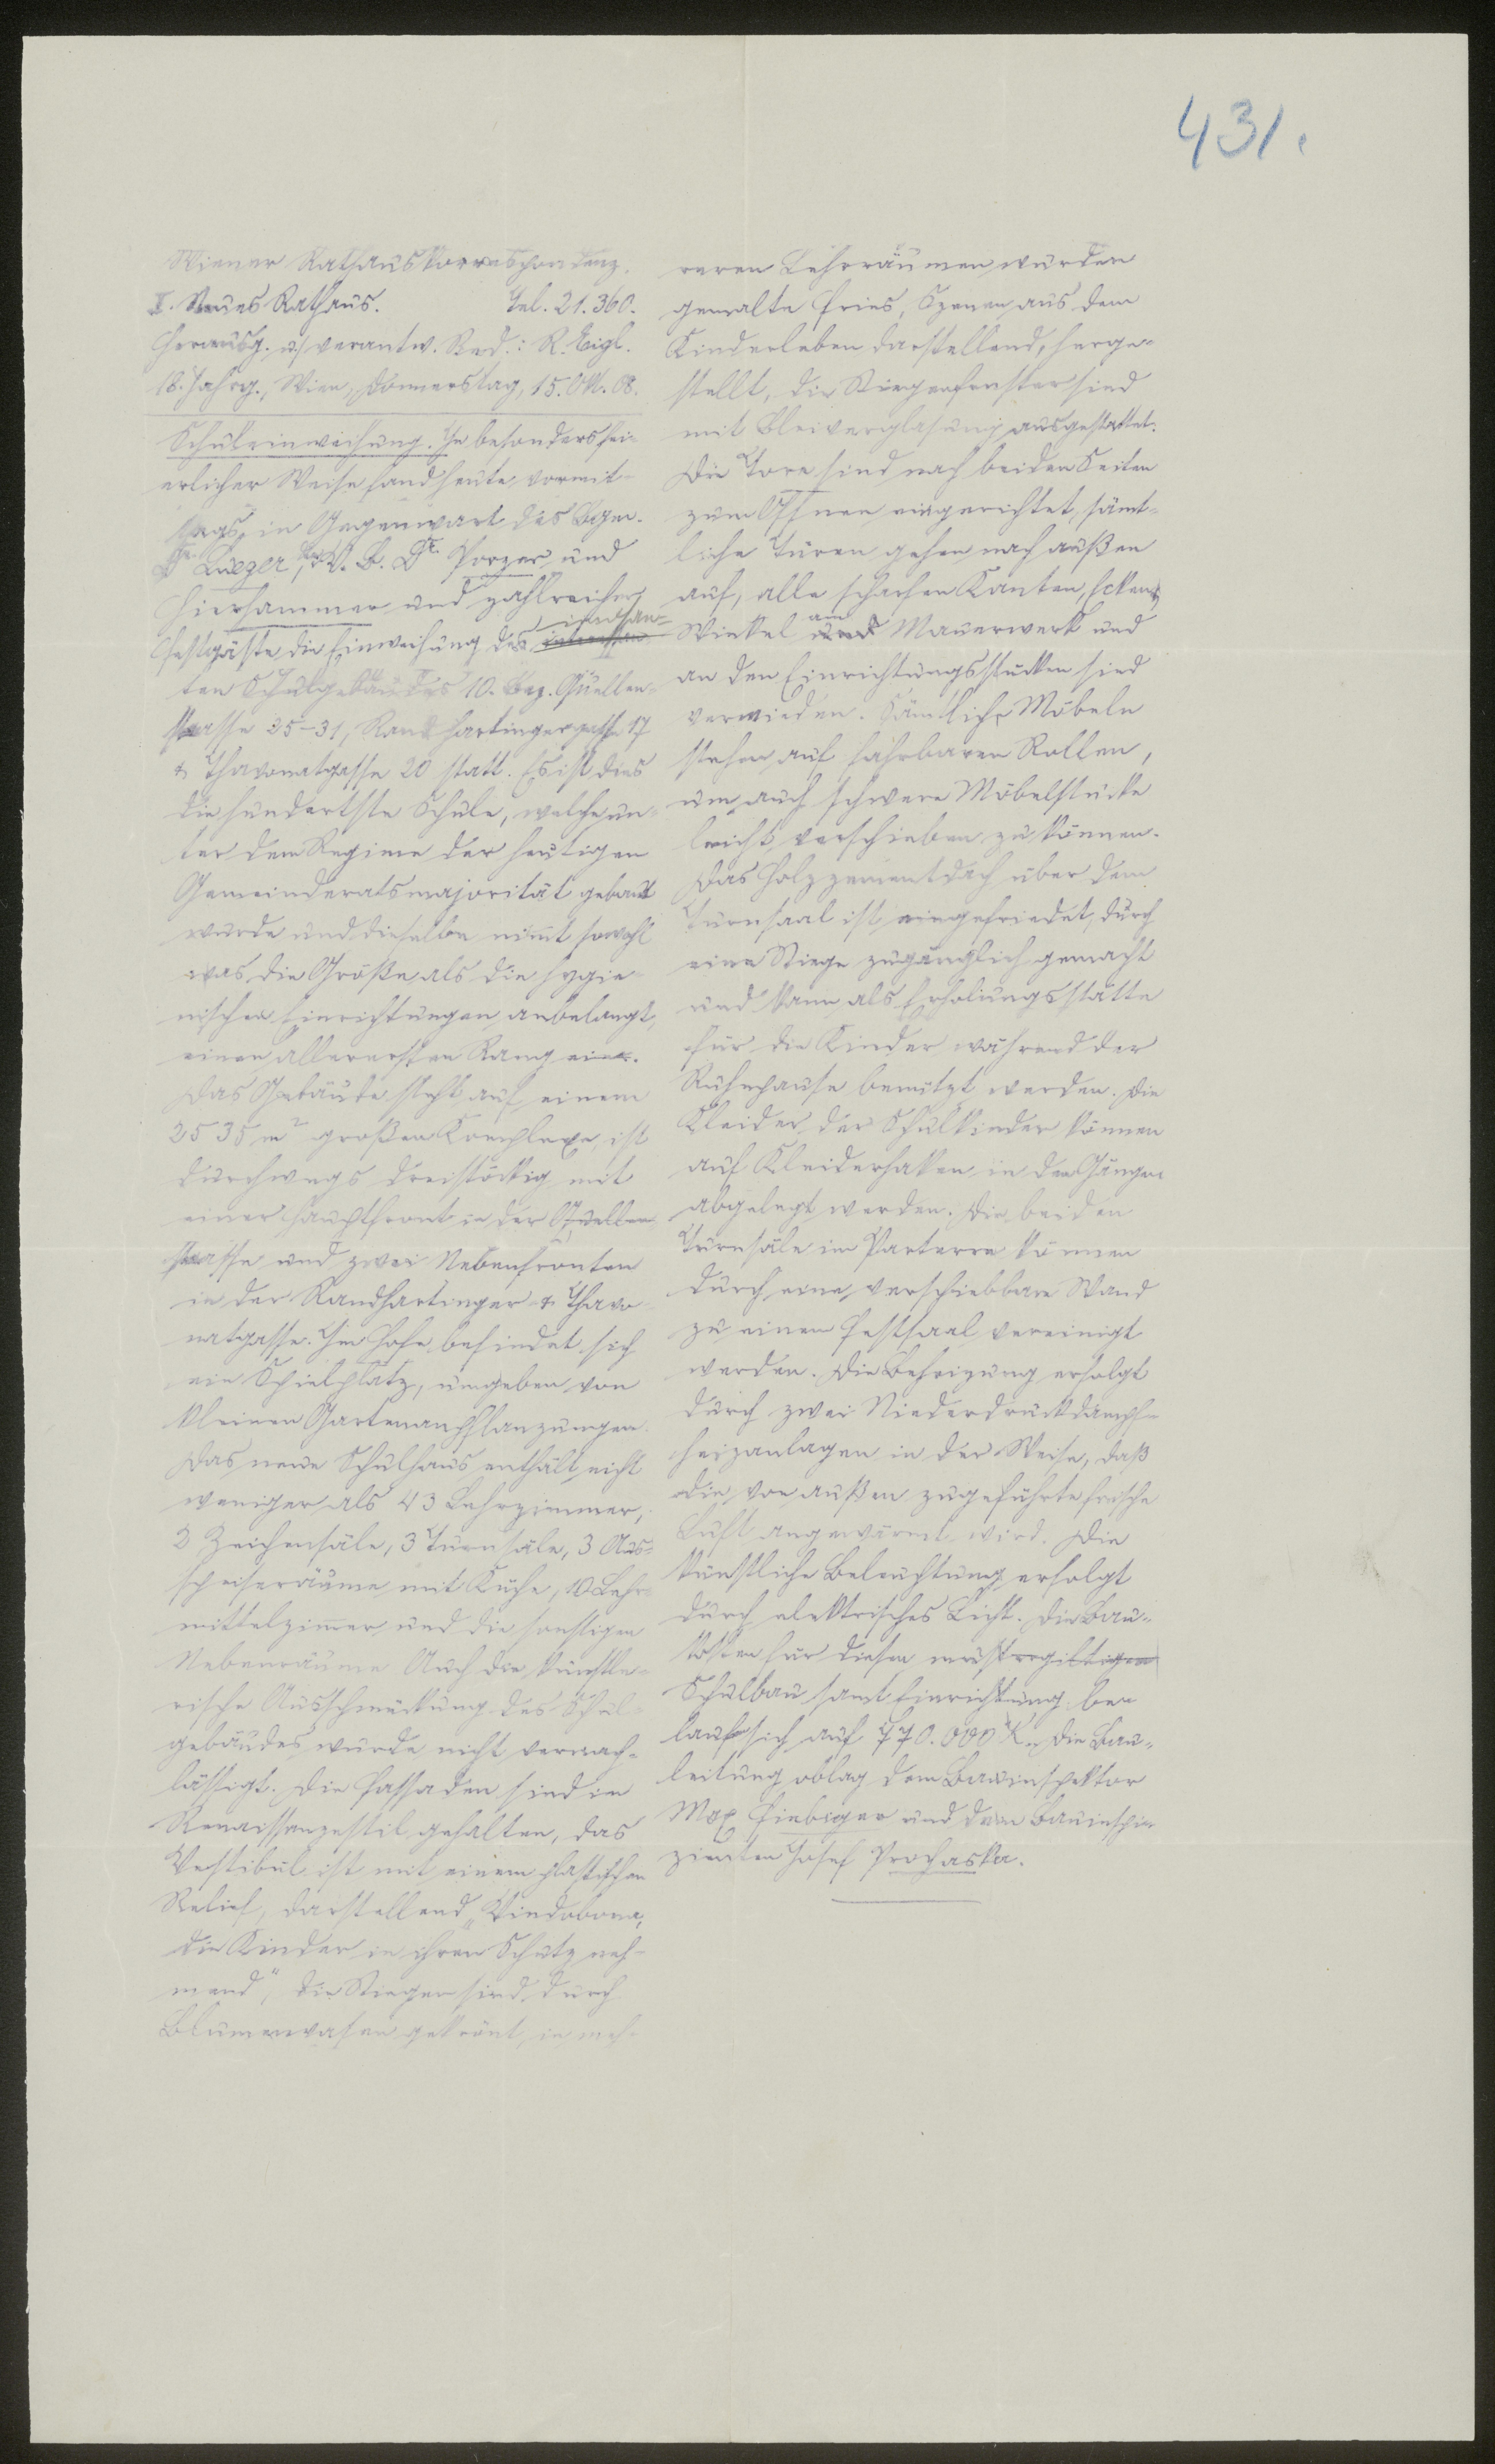 431.
Wiener Rathauskorrespondenz.
I. Neues Rathaus. Tel. 21.360.
Herausg. u. verantw. Red.: R. Eigl.
18. Jahrg., Wien, Donnerstag, 15. Okt. 08.
Schuleinweihung. In besonders fei-
erlicher Weise fand heute vormit-
tags in Gegenwart des Bgm.
Dr. Lueger, der V. B. Dr. Porzer und
Hierhammer und zahlreicher
Festgäste die Einweihung des imposan-
ten Schulgebäudes 10. Bez. Quellen-
strasse 25-31, Randhartingergasse 17
& Thavonatgasse 20 statt. Es ist dies
die hundertste Schule, welche un-
ter dem Regime der heutigen
Gemeinderatsmajorität gebaut
wurde und dieselbe nimmt sowohl
was die Größe als die hygie-
nischen Einrichtungen anbelangt,
einen allerersten Rang ein.
Das Gebäude steht auf einem
2535 m² großen Komplexe, ist
durchwegs dreistöckig mit
einer Hauptfront in der Quellen-
strasse und zwei Nebenfronten
in der Randhartinger & Thavo-
natgasse. Im Hofe befindet sich
ein Spielplatz, umgeben von
kleinen Gartenanpflanzungen.
Das neue Schulhaus enthält nicht
weniger als 43 Lehrzimmer,
2 Zeichensäle, 3 Turnsäle, 3 Aus-
speiseräume mit Küche, 10 Lehr-
mittelzimmer und die sonstigen
Nebenräume. Auch die künstle-
rische Ausschmückung des Schul-
gebäudes wurde nicht vernach-
lässigt. Die Fassaden sind im
Renaissanzestil gehalten, das
Vestibul ist mit einem plastischen
Relief, darstellend „Vindobona,
die Kinder in ihren Schutz neh-
mend", die Stiegen sind durch
Blumenvasen gekrönt, in meh-
reren Lehrräumen wurden
gemalte Fries, Szenen aus dem
Kinderleben darstellend, herge-
stellt, die Stiegenfenster sind
mit Bleiverglasung ausgestattet.
Die Tore sind nach beiden Seiten
zum Öffnen eingerichtet, sämt-
liche Türen gehen nach außen
auf, alle scharfen Kanten, Ecken &
Winkel am Mauerwerk und
an den Einrichtungsstücken sind
vermieden. Sämtliche Möbeln
stehen auf fahrbaren Rollen,
um auch schwere Möbelstücke
leicht verschieben zu können.
Das Holzzementdach über dem
Turnsaal ist eingefriedet, durch
eine Stiege zugänglich gemacht
und kann als Erholungsstätte
für die Kinder während der
Ruhepause benützt werden. Die
Kleider der Schulkinder können
auf Kleiderhaken in den Gängen
abgelegt werden. Die beiden
Turnsäle im Parterre können
durch eine verschiebbare Wand
zu einem Festsaal vereinigt
werden. Die Beheizung erfolgt
durch zwei Niederdruckdampf-
heizanlagen in der Weise, daß
die von außen zugeführte frische
Luft angewärmt wird. Die
künstliche Beleuchtung erfolgt
durch elektrisches Licht. Die Bau-
kosten für diesen mustergiltigen
Schulbau samt Einrichtung be-
laufen sich auf 770.000 K. Die Bau-
leitung oblag dem Bauinspektor
Max Fiebiger und dem Bauinspi-
zienten Josef Prochaska.